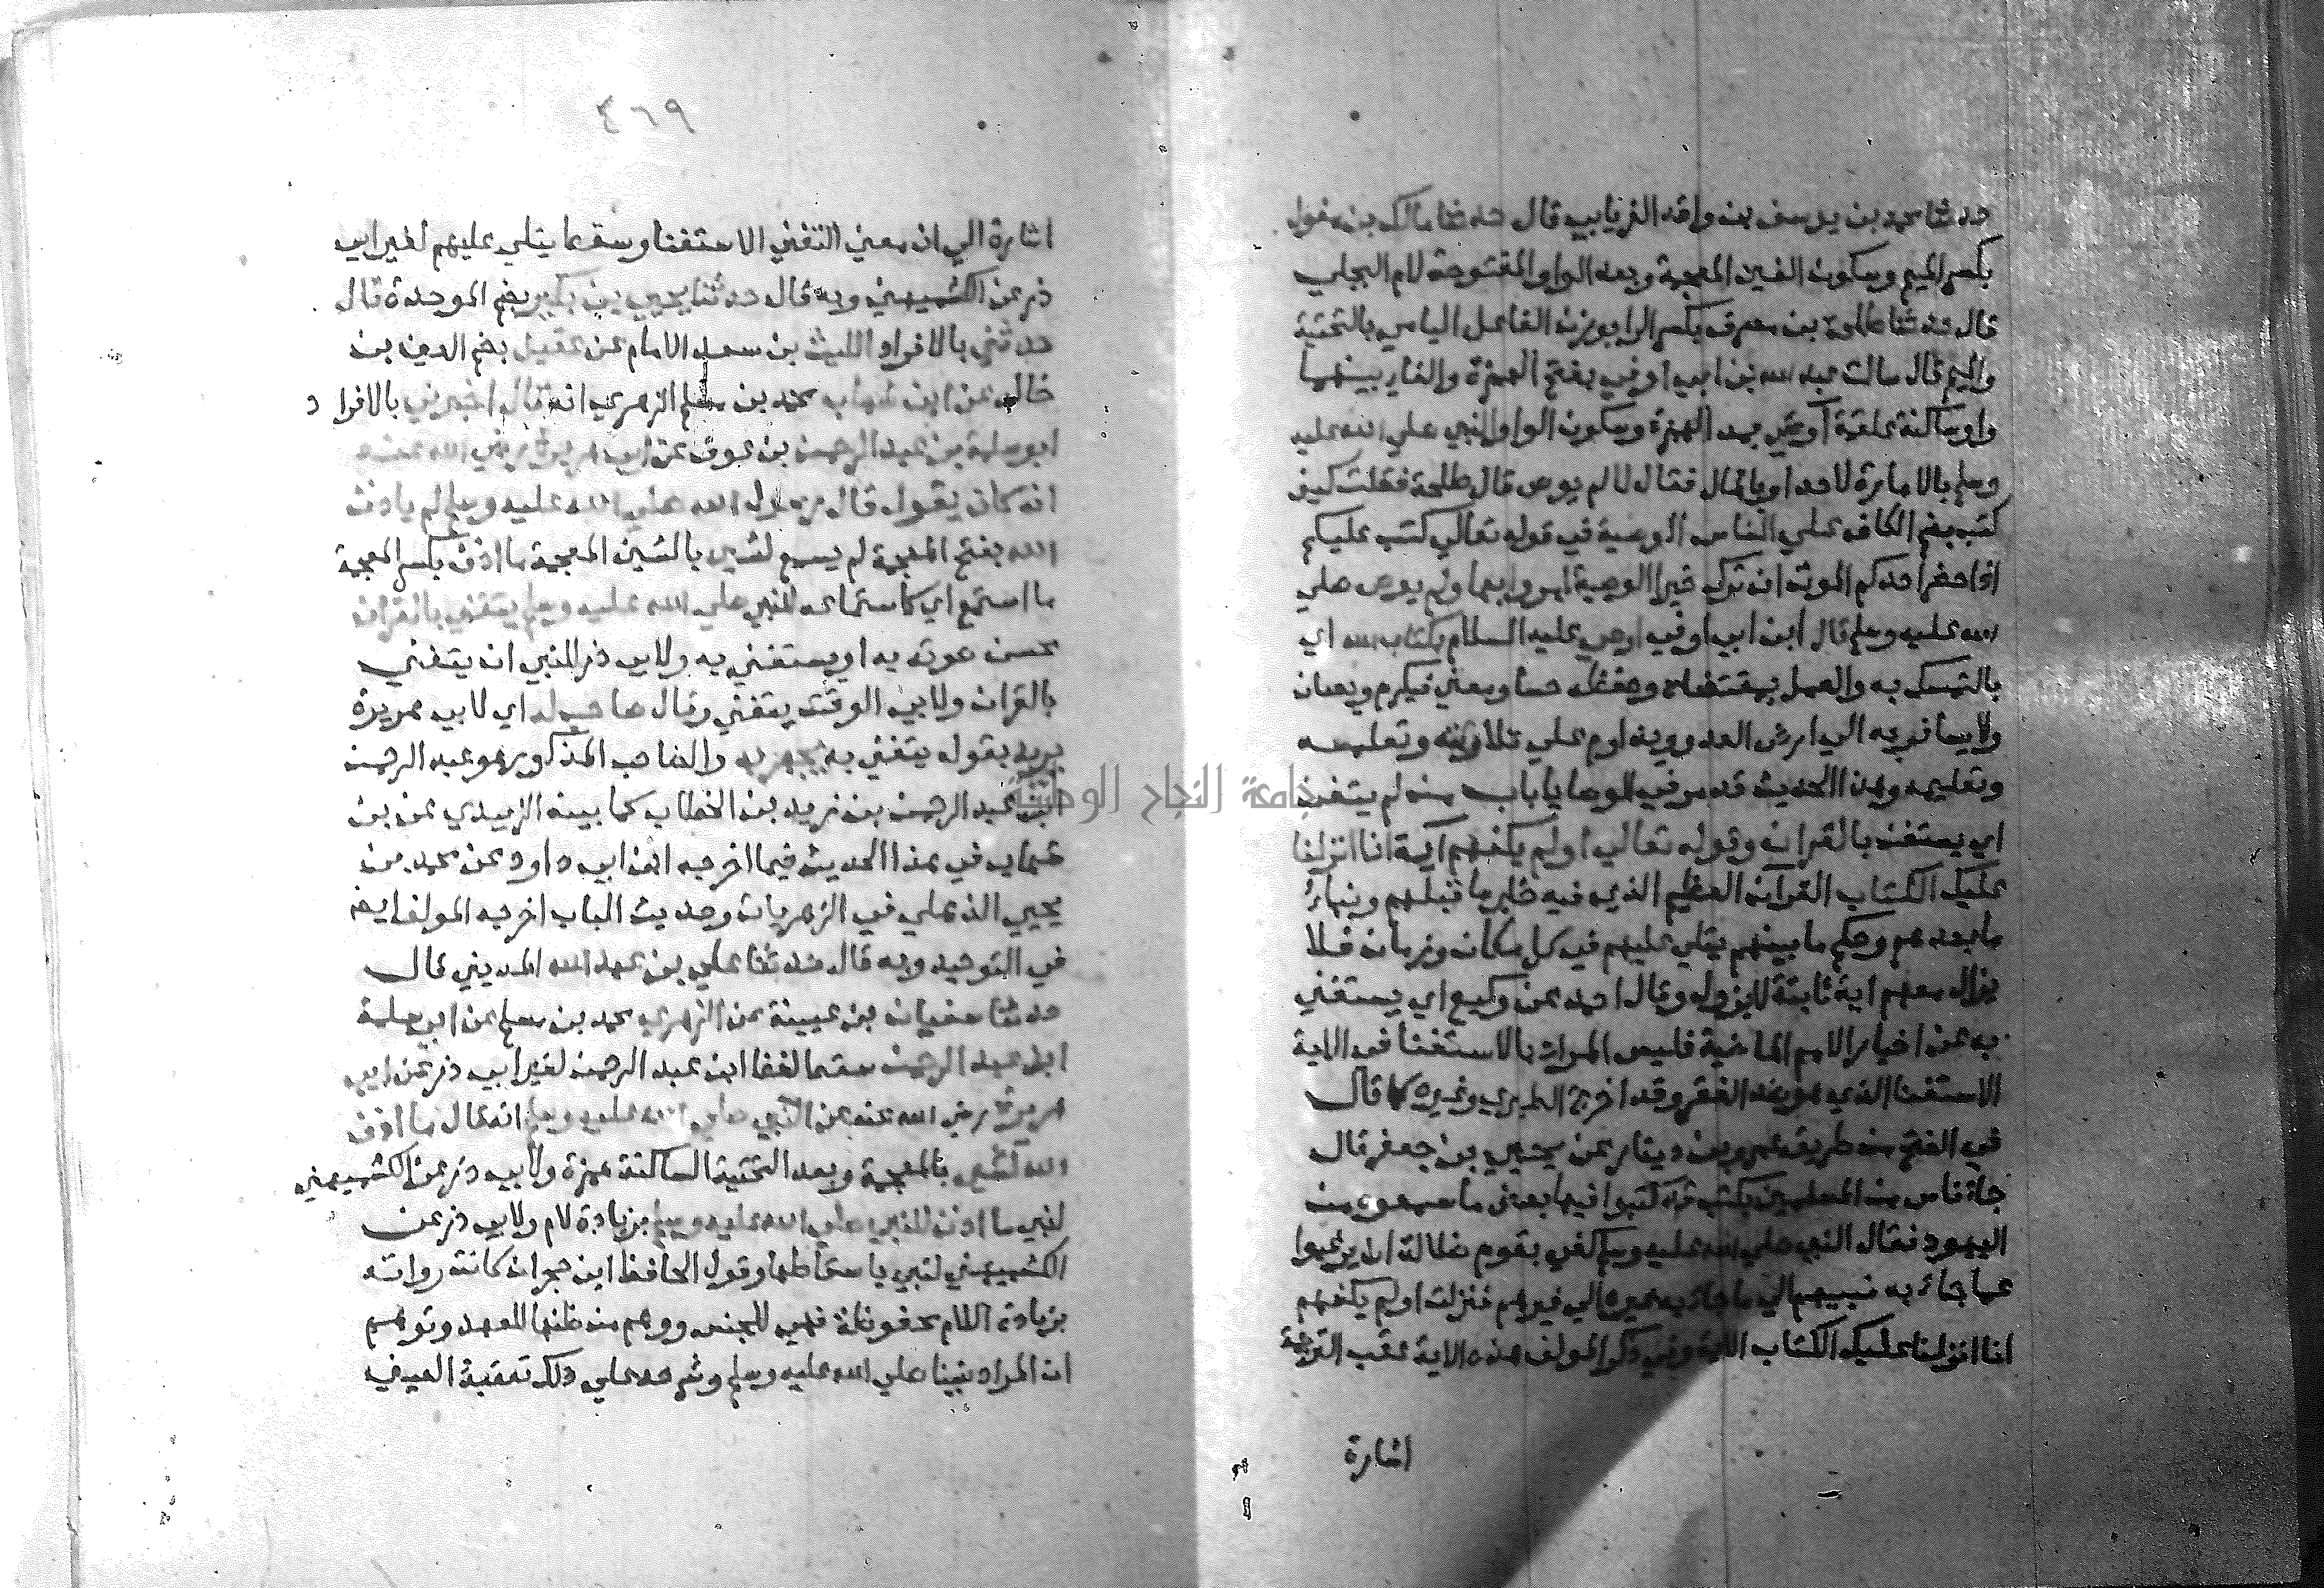 حدثنا محمد بن يوسف بن واقد الفريابي قال حدثنا مالك بن مغول
بكسر الميم وسكون الغين المعجمة وبعد الواو المفتوحة لام البجلي
قال حدثنا طلحة بن مصرف بكسر الرا بوزن الفاعل اليامي بالتحتية
والميم قال سالت عبد الله بن ابي اوفي بفتح الهمزة والفا بينهما
واو ساكنة علقمة آوصي بمد الهمزة وسكون الواو النبي صلي الله عليه
وسلم بالامارة لاحد او بالمال فقال لا لم يوص قال طلحة فقلت كيف
كتب بضم الكاف علي الناس الوصية في قوله تعالي كتب عليكم
اذا حضر احدكم الموت ان ترك خيرا الوصية امروا بها ولم يوص صلي
الله عليه وسلم قال ابن ابي اوفي اوصي عليه السلام بكتاب الله اي
بالتمسك به والعمل بمقتضاه وحفظه حسا ومعني فيكرم ويصان
ولا يسافر به الي ارض العدو ويداوم علي تلاوته وتعلمه
وتعليمه وهذا الحديث قد مر في الوصايا باب من لم يتغن
اي يستغن بالقران وقوله تعالي اولم يكفهم آية انا انزلنا
عليك الكتاب القرآن العظيم الذي فيه خبر ما قبلهم ونبأ
ما بعدهم وحكم ما بينهم يتلي عليهم في كل مكان وزمان فلا
يزال معهم اية ثابتة لا تزول وقال احمد عن وكيع اي يستغني
به عن اخبار الامم الماضية فليس المراد بالاستغنا في الاية
الاستغنا الذي هو ضد الفقر وقد اخرج الطبري وغيره كما قال
في الفتح من طريق عمرو بن دينار عن يحيي بن جعفر قال
جاء ناس من المسلمين بكتب قد كتبوا فيها بعض ما سمعوه من
اليهود فقال النبي صلي الله عليه وسلم كفي بقوم ضلالة ان يرغبوا
عما جاء به نبيهم الي ما جاء به غيره الي غيرهم فنزلت اولم يكفهم
انا انزلنا عليك الكتاب الاية وفي ذكر المولف هذه الاية عقب الترجمة
اشارة
٤٦٩
اشارة الي ان معني التغني الاستغنا وسقط يتلي عليهم لغير ابي
ذر عن الكشميهني وبه قال حدثنا يحيي بن بكير بضم الموحدة قال
حدثني بالافراد الليث بن سعد الامام عن عقيل بضم العين بن
خالد عن ابن شهاب محمد بن مسلم الزهري انه قال اخبرني بالافراد
ابو سلمة بن عبد الرحمن بن عوف عن ابي هريرة رضي الله عنه
انه كان يقول قال رسول الله صلي الله عليه وسلم لم ياذن
الله بفتح المعجمة لم يسمع لشي بالشين المعجمة ما اذن بكسر المعجمة
ما استمع اي كاستماعه للنبي صلي الله عليه وسلم يتغني بالقران
يحسن صوته به او يستغني به ولابي ذر للنبي ان يتغني
بالقران ولابي الوقت يتغني وقال صاحب له اي لابي هريرة
يريد بقوله يتغني به يجهر به والصاحب المذكور هو عبد الرحمن
ابن عبد الرحمن بن زيد بن الخطاب كما بينه الزبيدي عن بن
شهاب في هذا الحديث فيما اخرجه ابن ابي داود عن محمد بن
يحيي الذهلي في الزهريات وحديث الباب اخرجه المولف ايضا
في التوحيد وبه قال حدثنا علي بن عبد الله المديني قال
حدثنا سفيان بن عيينة عن الزهري محمد بن مسلم عن ابي سلمة
ابن عبد الرحمن سقط لفظ ابن عبد الرحمن لغير ابي ذر عن ابي
هريرة رضي الله عنه عن النبي صلي الله عليه وسلم انه قال ما اذن
الله لشي بالمعجمة وبعد التحتية الساكنة همزة ولابي ذر عن الكشميهني
لنبي ما اذن للنبي صلي الله عليه وسلم بزيادة لام ولابي ذر عن
الكشميهني لنبي باسقاطها وقول الحافظ ابن حجر ان كانت روايته
بزيادة اللام محفوظة فهي للجنس ووهم من ظنها للعهد وتوهم
ان المراد نبينا صلي الله عليه وسلم وشرحه علي ذلك تعقبه العيني
جامعة النجاح الوطنية